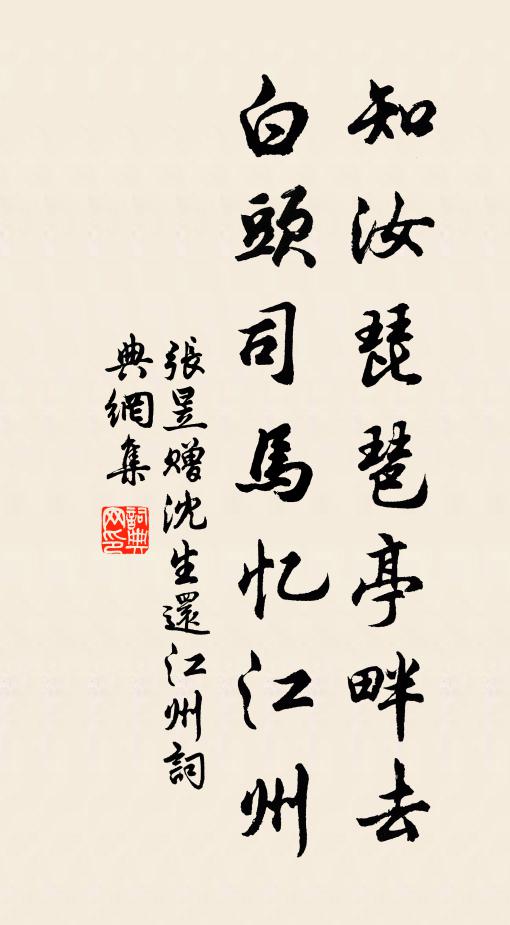 知汝琵琶亭畔去
白頭司馬忆江州
張昱赠沈生還江州詞
典網集
詞典
网印